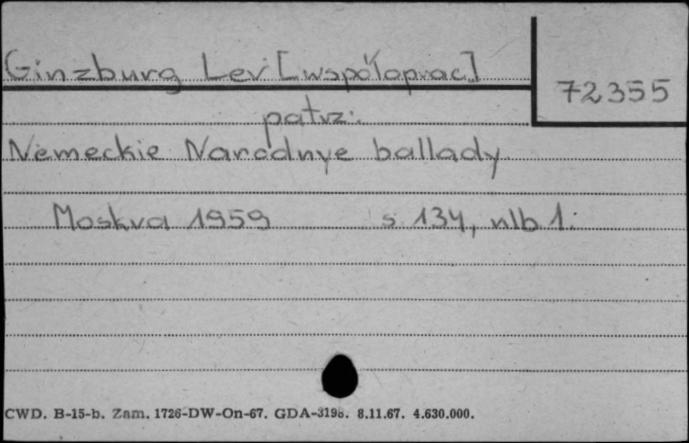 Ginzburg Lev [współoprac]
72355
patrz:
Nemeckie Narodnye ballady
Moskva 1959 s. 134, nlb 1.
CWD. B-15-b. Zam. 1726-DW-On-67. GDA-3198. 8.11.67. 4.630.000.